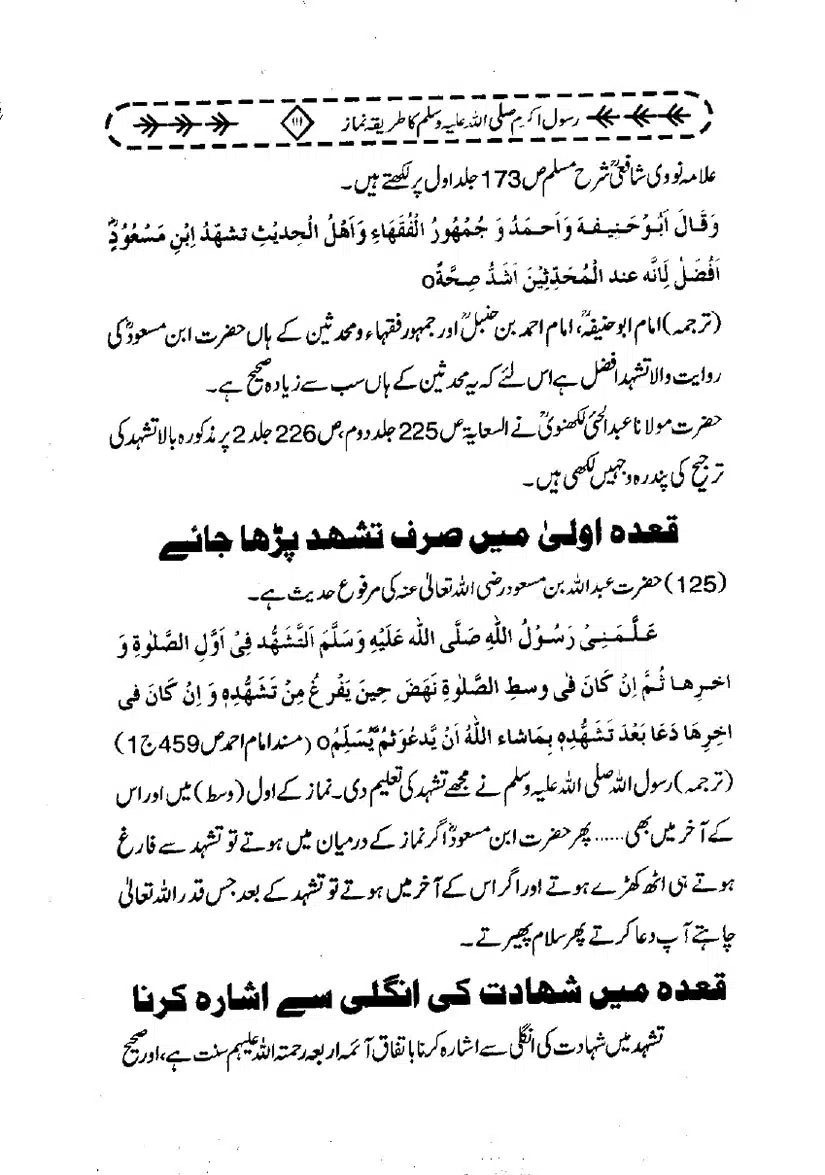 رسول اکرم صلی اللہ علیہ وسلم کا طریقہ نماز ۱۱۱
علامہ نووی شافعیؒ شرح مسلم ص 173 جلد اول پر لکھتے ہیں۔
وَقَالَ اَبُوْحَنِيفَهَ وَاَحمَدُ وَ جُمْهُورُ الْفُقَهَاءِ وَاَهْلُ الْحَدِيْثِ تشهّدُ اِبْنِ مَسْعُوْدٍؓ
اَفْضَلُ لِاَنَّه عند الْمُحَدِّثِيْنَ اَشَدُّ صِحَّةًo
(ترجمہ) امام ابوحنیفہؒ، امام احمد بن حنبلؒ اور جمہور فقہاء و محدثین کے ہاں حضرت ابن مسعودؓ کی
روایت والا تشہد افضل ہے اس لئے کہ یہ محدثین کے ہاں سب سے زیادہ صحیح ہے۔
حضرت مولانا عبدالحئی لکھنویؒ نے السعایۃ ص 225 جلد دوم، ص 226 جلد 2 پر مذکورہ بالا تشہد کی
ترجیح کی پندرہ وجہیں لکھی ہیں۔
قعدہ اولیٰ میں صرف تشھد پڑھا جائے
(125) حضرت عبداللہ بن مسعود رضی اللہ تعالیٰ عنہ کی مرفوع حدیث ہے۔
عَلَّمَنِیْ رَسُوْلُ اللهِ صَلَّی اللهُ عَلَيْهِ وَسَلَّمَ اَلتَّشَهُّد فِیْ اَوَّلِ الصَّلٰوةِ وَ
اخرِها ثُمَّ اِنْ كَانَ فی وسطِ الصَّلٰوةِ نَهَضَ حِينَ يَفْرغُ مِنْ تَشَهُّدِهٖ وَ اِنْ كَانَ فی
اخِرِهَا دَعَا بَعْدَ تَشَهُّدِهٖ بِمَاشاء اللهُ اَنْ يَّدعُوَثُمَّ يُسَلِّمُo (مسند امام احمد ص 459 ج 1)
(ترجمہ) رسول اللہ صلی اللہ علیہ وسلم نے مجھے تشہد کی تعلیم دی۔ نماز کے اول (وسط) میں اور اس
کے آخر میں بھی...... پھر حضرت ابن مسعودؓ اگر نماز کے درمیان میں ہوتے تو تشہد سے فارغ
ہوتے ہی اٹھ کھڑے ہوتے اور اگر اس کے آخر میں ہوتے تو تشہد کے بعد جس قدر اللہ تعالیٰ
چاہتے آپ دعا کرتے پھر سلام پھیرتے۔
قعدہ میں شھادت کی انگلی سے اشارہ کرنا
تشہد میں شہادت کی انگلی سے اشارہ کرنا باتفاق آئمہ اربعہ رحمتہ اللہ علیہم سنت ہے، اور صحیح